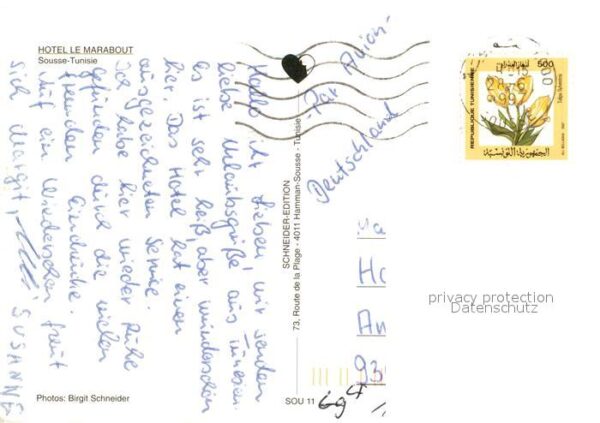 HOTEL LE MARABOUT
Sousse-Tunisie
Hallo ihr Lieben, wir senden
liebe Urlaubsgrüße aus Tunesien.
es ist sehr heiß, aber wunderschön
hier. Das Hotel hat einen
ausgezeichneten Service.
Ich habe hier wieder Ruhe
gefunden durch die vielen
fremden Eindrücke.
Auf ein Wiedersehen freut
sich Margit,
SUSANNE
Photos: Birgit Schneider
SCHNEIDER-EDITION
73, Route de la Plage - 4011 Hamman-Sousse - Tunisie
SOU 11
Par Avion
Deutschland
500
REPUBLIQUE TUNISIENNE
الجمهورية التونسية
Ha
An
privacy protection
Datenschutz